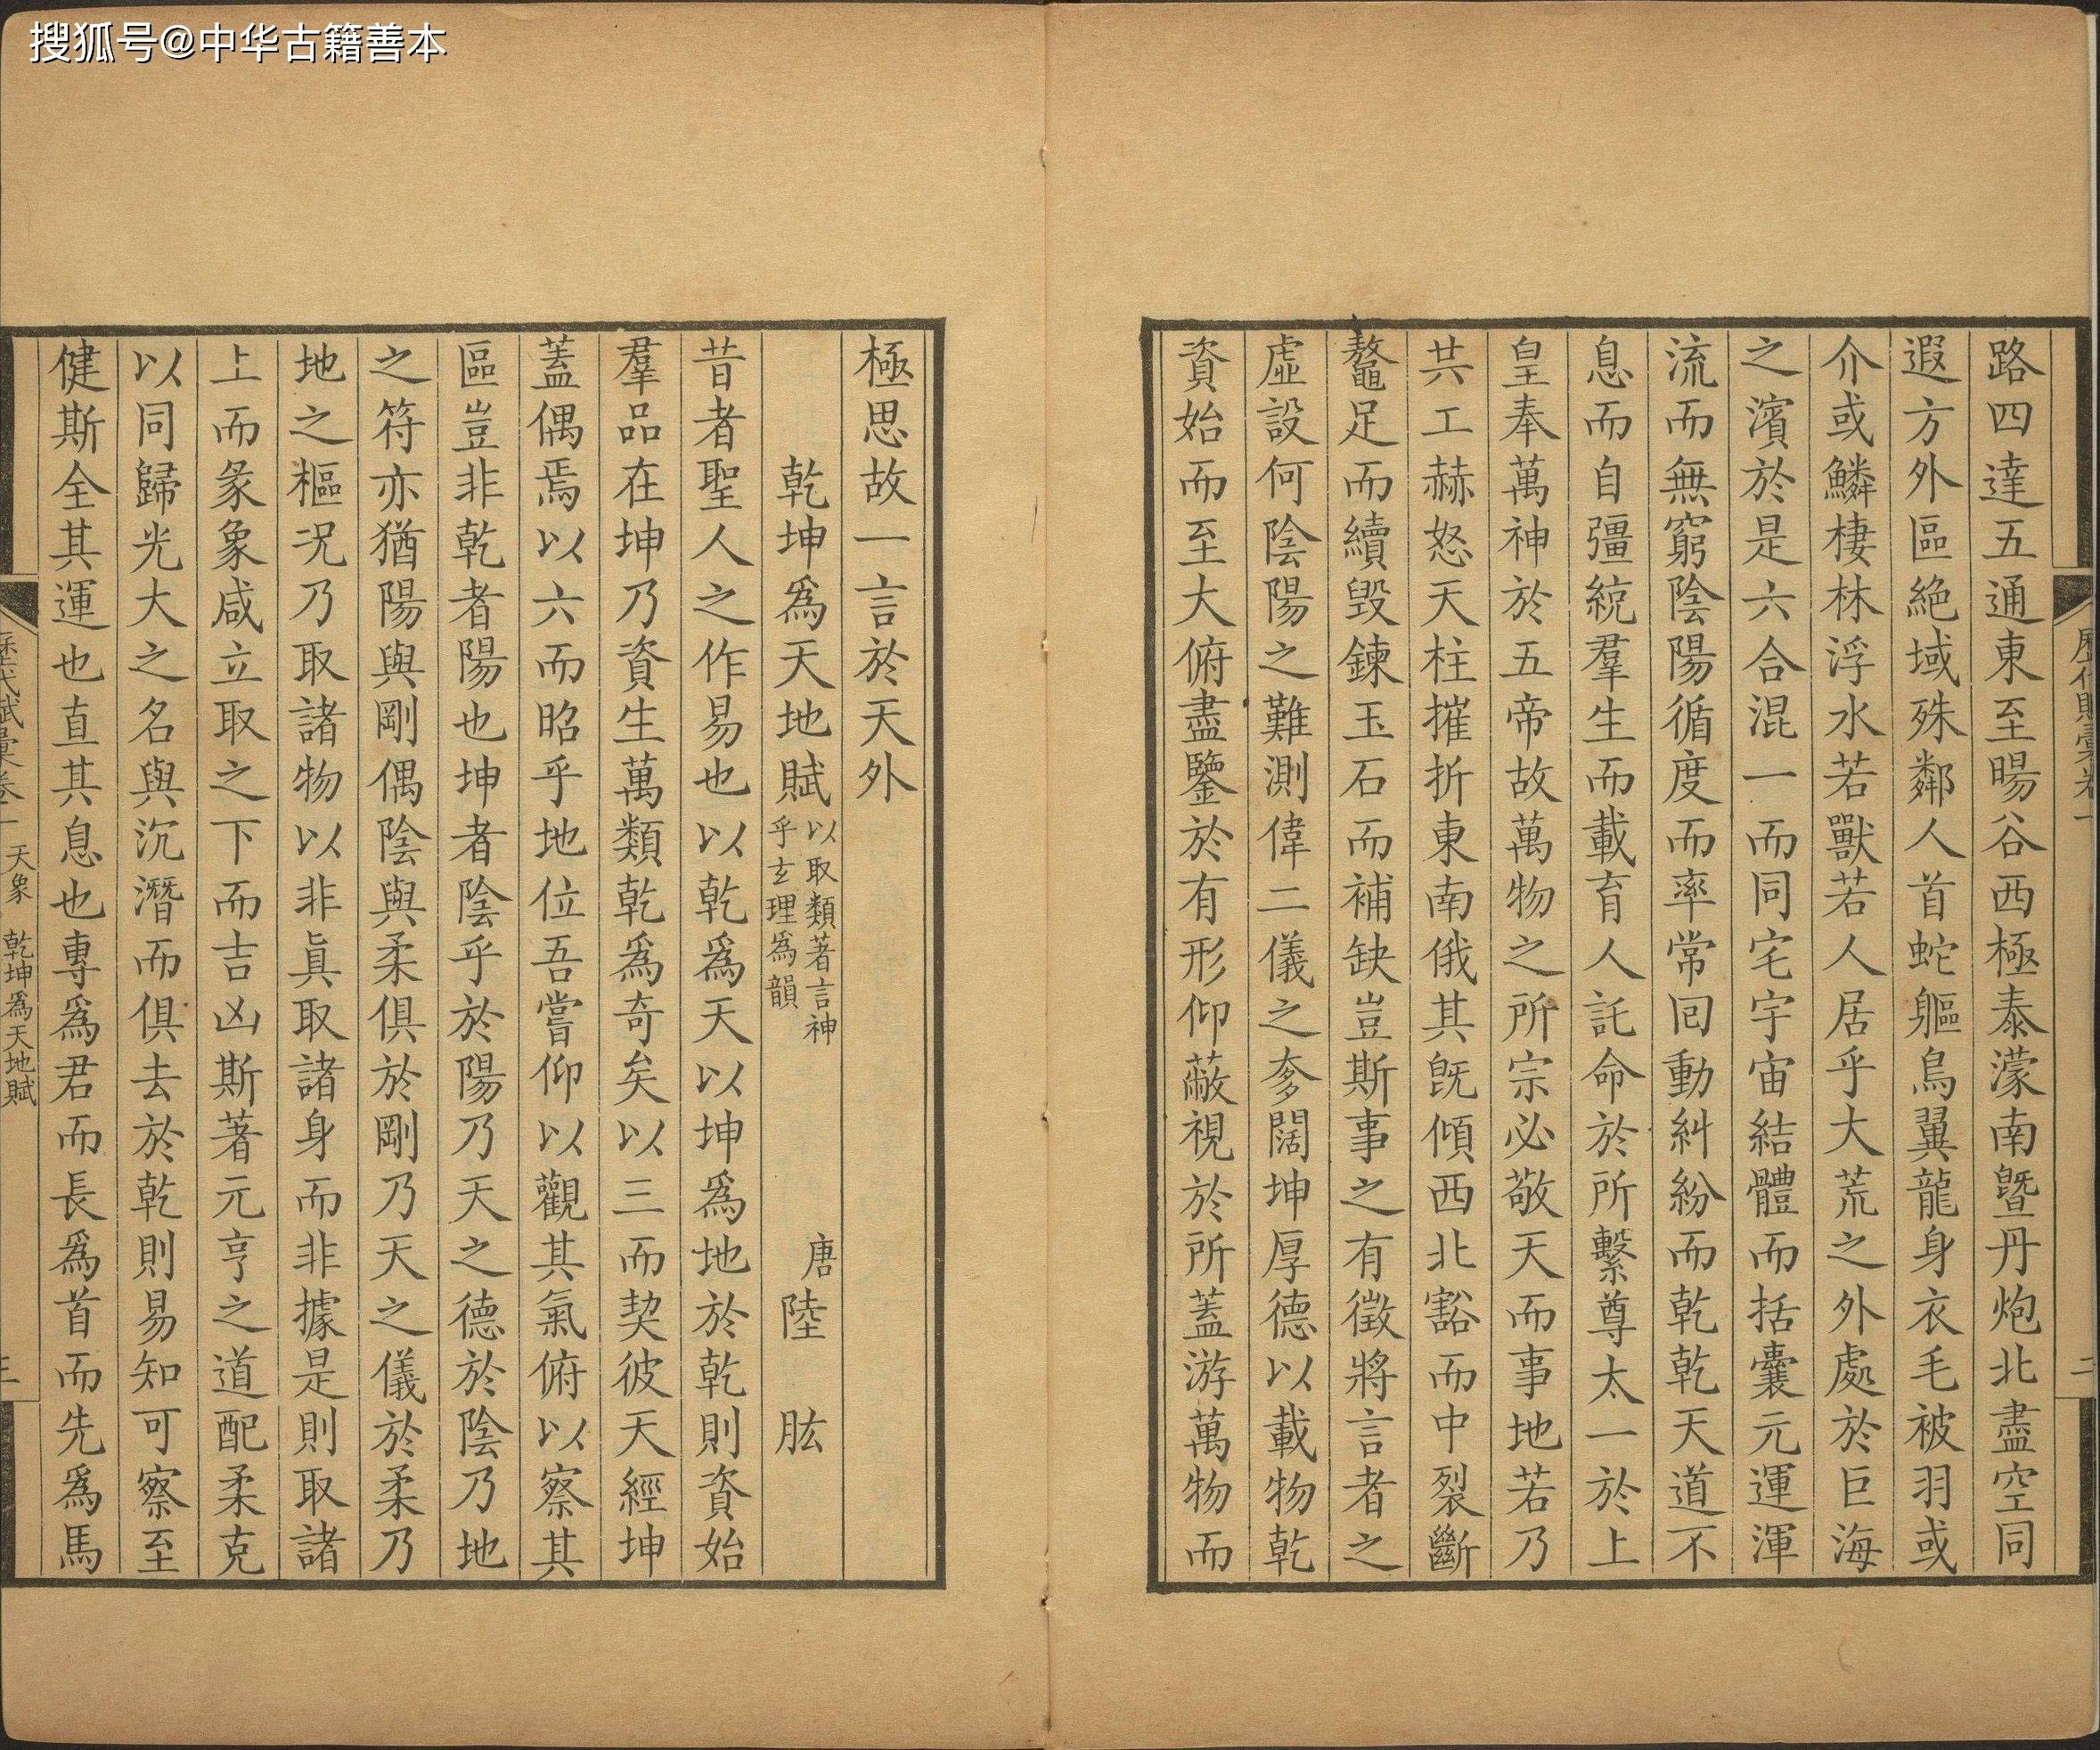 搜狐号@中华古籍善本
路四達五通東至暘谷西極泰濛南暨丹炮北盡空同
遐方外區絶域殊鄰人首蛇軀鳥翼龍身衣毛被羽或
介或鱗棲林浮水若獸若人居乎大荒之外處於巨海
之濱於是六合混一而同宅宇宙結體而括囊元運渾
流而無窮陰陽循度而率常回動糾紛而乾乾天道不
息而自彊統羣生而載育人託命於所繫尊太一於上
皇奉萬神於五帝故萬物之所宗必敬天而事地若乃
共工赫怒天柱摧折東南俄其旣傾西北豁而中裂斷
鼇足而續毀鍊玉石而補缺豈斯事之有徵將言者之
虛設何陰陽之難測偉二儀之奓闊坤厚德以載物乾
資始而至大俯盡鑒於有形仰蔽視於所蓋游萬物而
歷代賦彙卷一
二
極思故一言於天外
乾坤爲天地賦
以取類著言神
乎玄理爲韻
唐陸肱
昔者聖人之作易也以乾爲天以坤爲地於乾則資始
羣品在坤乃資生萬類乾爲奇矣以三而契彼天經坤
蓋偶焉以六而昭乎地位吾嘗仰以觀其氣俯以察其
區豈非乾者陽也坤者陰乎於陽乃天之德於陰乃地
之符亦猶陽與剛偶陰與柔俱於剛乃天之儀於柔乃
地之樞况乃取諸物以非眞取諸身而非據是則取諸
上而彖象咸立取之下而吉凶斯著元亨之道配柔克
以同歸光大之名與沉潛而俱去於乾則易知可察至
健斯全其運也直其息也專爲君而長爲首而先爲馬
歷代賦彙卷一
天象
乾坤爲天地賦
三